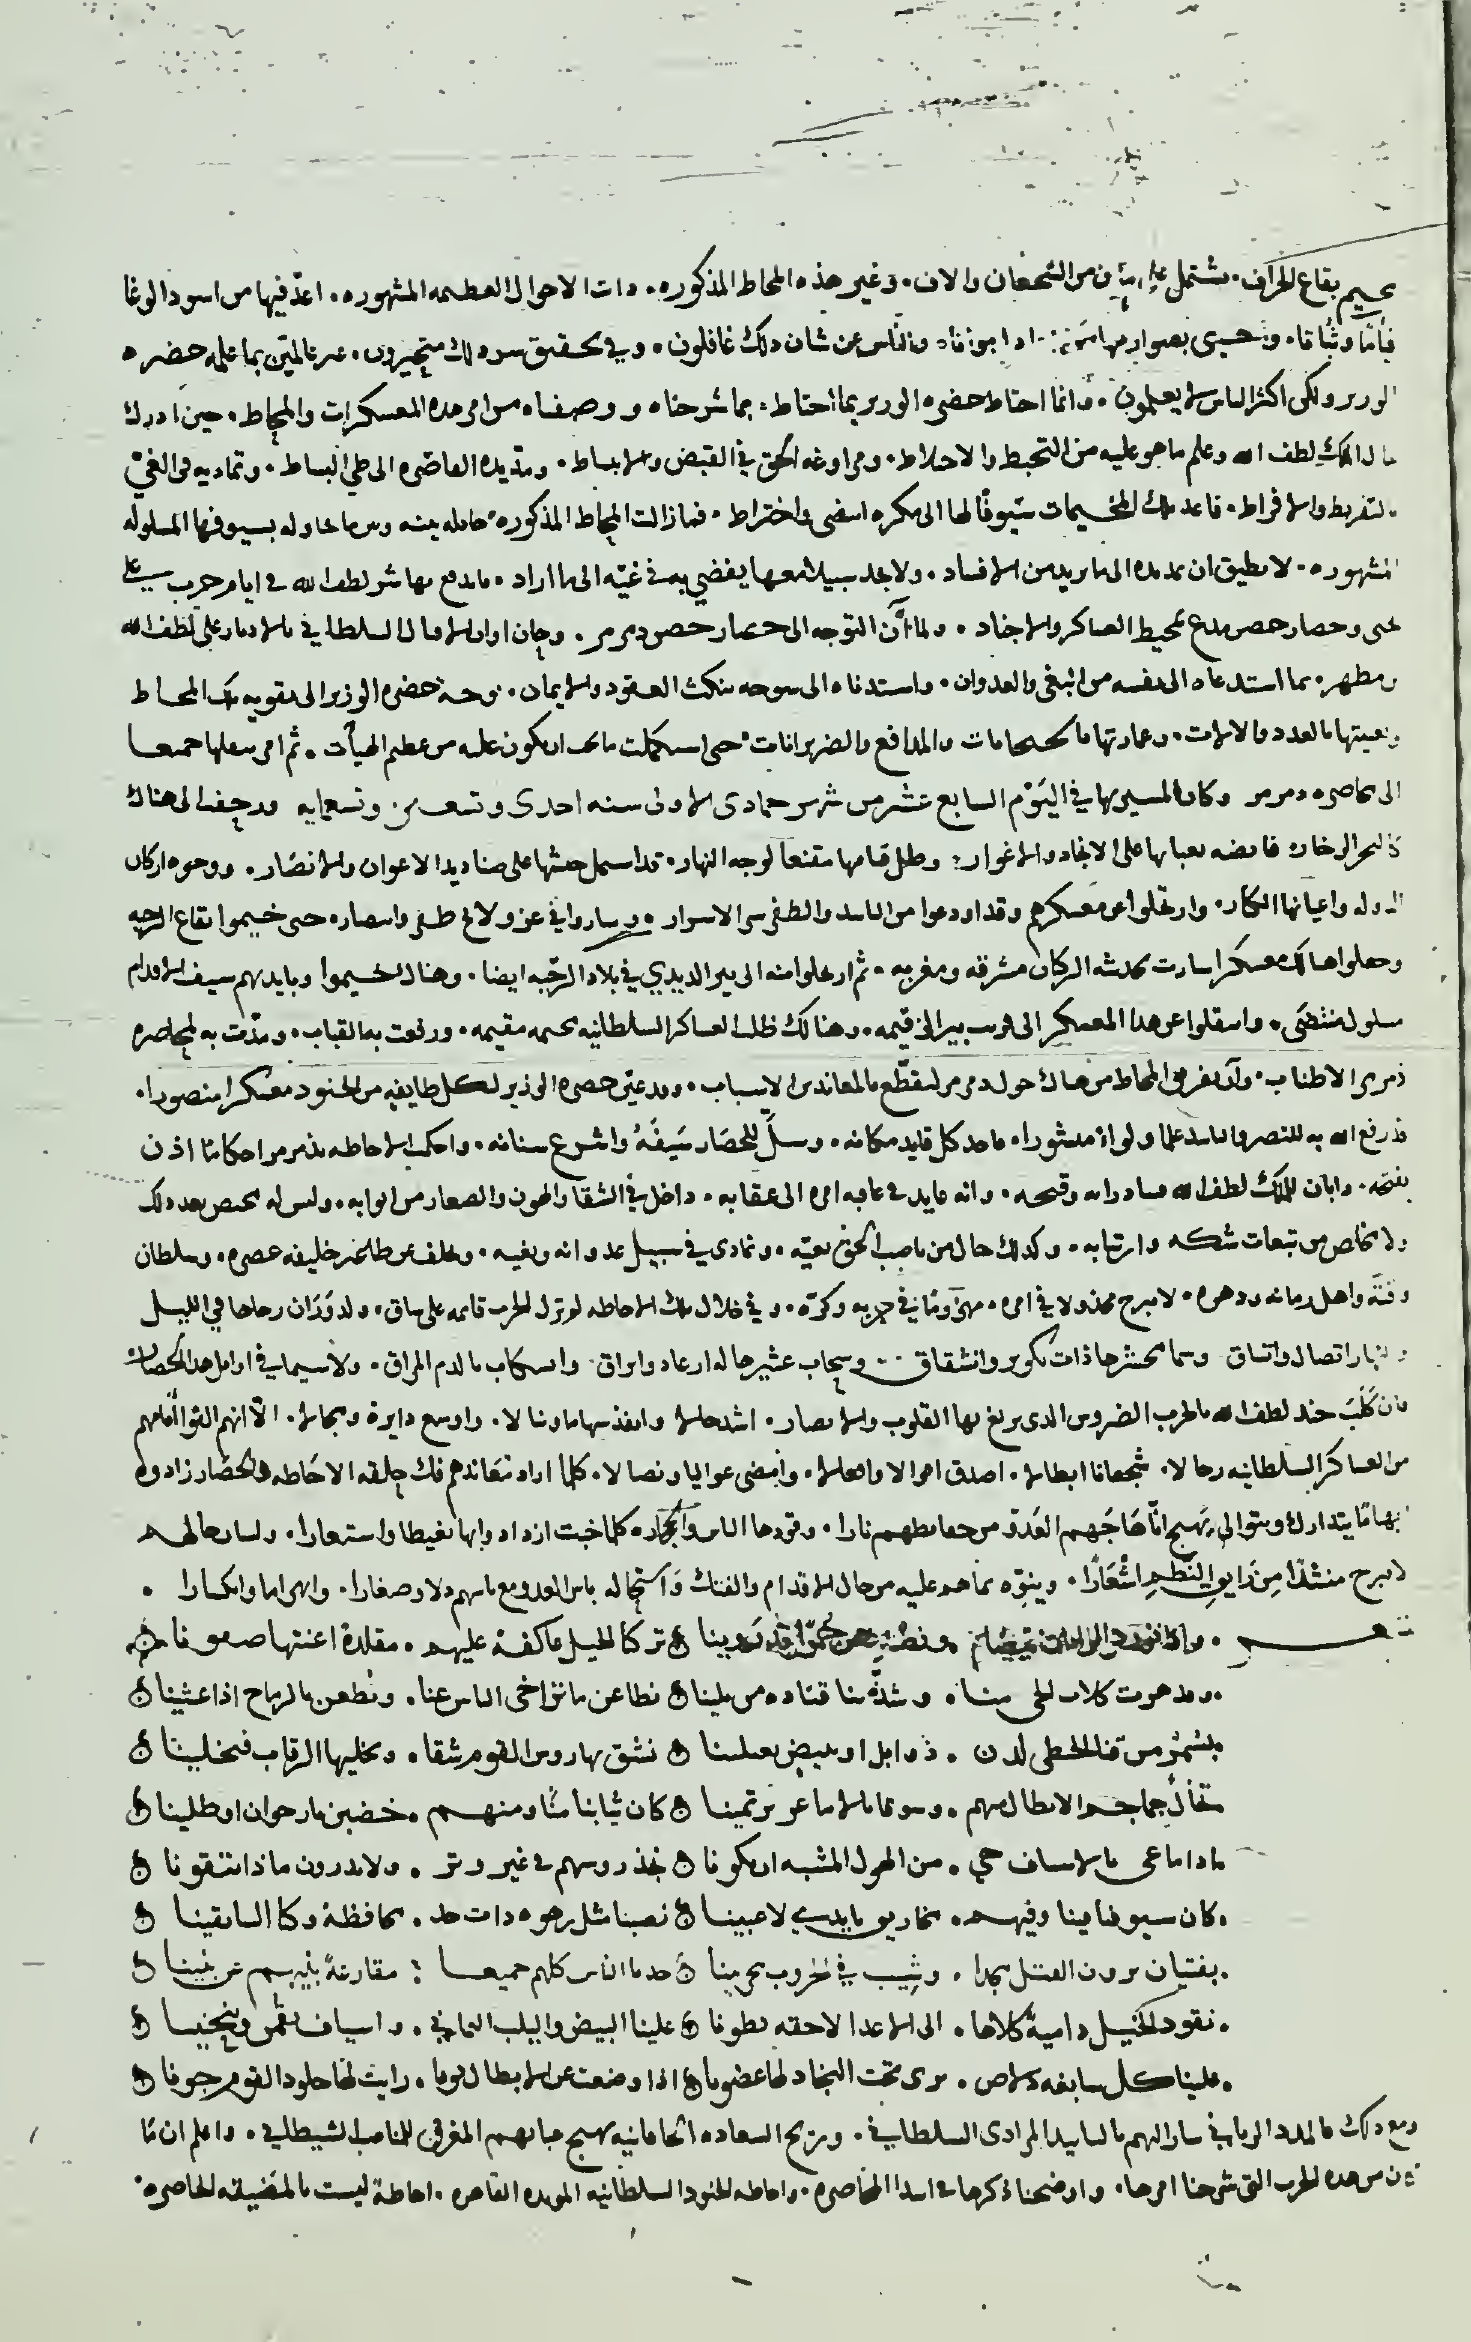 مخيم بقاع الجراف. تشتمل على من الشجعان والاف. وغير هذه المحاط المذكوره. ذات الاحوال العظيمه المشهوره. اعدّ فيها من اسود الوغا
والناس عن شان ذلك غافلون. وفي تحقيق سره لك متحيرون. غير عالمين بما علمه حضره
الوزير ولكن اكثر الناس لا يعلمون. وانما احتاط حضره الوزير بما احتاط. مما شرحناه ووصفناه من امر هذه المعسكرات والمحاط. حين ادرك
حال الملك لطف الله وعلم ما هو عليه من التخبط والاختلاط. ومراوغه الحق في القبض والانبساط. ومد يده القاصره الى طي البساط. وتماديه في الغي
والتفريط والافراط. فاعد تلك المخيمات سيوفًا لها الى مكره انتضى واختراط. فما زالت المحاط المذكوره حايله بينه وبين ما يحاوله بسيوفها المسلوله
المشهوره. لا يطيق ان يمد يده الى ما يريد من الافساد. ولا يجد سبيلا معها يفضي به في غيّه الى ما اراد. فاندفع بها شر لطف الله في ايام حرب علي
يحيى وحصار حصن مدع بمحيط العساكر والاجناد. ولما آن التوجه الى حصار حصن ذي مرمر. وحان اوان الاقبال السلطاني بالادبار على لطف الله
ومطهر. بما استدعاه الى نفسه من البغي والعدوان. واستدناه الى سوحه بنكث العقود والايمان. توجه حضره الوزير الى تقويه تلك المحاط
وتعبيتها بالعدد والالات. وعمارتها بالجبخانات والمدافع والضربزانات. حتى استكملت ما يجب ان يكون عليه من عظيم الهيات. ثم امر بنقلها جميعا
الى محاصره ذمرمر وكان المسير بها في اليوم السابع عشر من شهر جمادى الاولى سنه احدى وتسعين وتسعمايه فزحفت الى هناك
كالبحر الزخار. فايضه بعبابها على الانجاد والاغوار. وظل قتامها مقنعا لوجه النهار. قد اشتمل جيشها على صناديد الاعوان والانصار. ووجوه اركان
الدوله واعيانها الكبار. وارتحلوا عن معسكرهم وقد اودعوا من الباسد والظفر سر الاسرار. وساروا في عز ولايح ظفر وانتصار. حتى خيموا بقاع الرحبه
وجعلوا هنالك معسكرا سارت بحديثه الركبان مشرقه ومغربه. ثم ارتحلوا منه الى بير الدبيدي في بلاد الرحبه ايضا. وهنالك خيموا وبايديهم سيف الاقدام
مسلول منتضى. وانتقلوا عن هذا المعسكر الى قرب بير الى قيمه. وهنالك ظلت العساكر السلطانيه مخيمه مقيمه. ورفعت به القباب. ومدّت به لمحاصره
ذمرمر الاطناب. وآن تفريق المحاط من هناك حول ذمرمر ليقطّع بالمعاندين الاسباب. وقد عيّن حضره الوزير لكل طايفه من الجنود معسكرا منصورا.
قد رفع الله به للنصر والتاييد علما ولواء منشورا. فاخذ كل قايد مكانه. وسلّ للحصار سيفه واشرع سنانه. واحكمت الاحاطه بذمرمر احكاما اذن
بفتحه. وابان للملك لطف الله فساد رايه وقبحه. وانه عايد في عاقبه امره الى عقابه. داخل في الشقا والهون والصغار من ابوابه. وليس له مخلص بعد ذلك
ولا خلاص من تبعات شكه وارتيابه. وكذلك حال من ناصب الحق بغيّه. وتمادى في سبيل عدوانه وبغيه. وتخلف عن طاعه خليفه عصره. وسلطان
وقته واهل زمانه ودهره. لا يبرح مخذولا في امره. مهزومًا في حربه وكرّه. وفي خلال تلك الاحاطه لم تزل الحرب قايمه على ساق. ولدوَرَان رحاها في الليل
والنهار اتصال واتساق. وسما محشرها ذات تكوير وانشقاق. وسحاب عثيرها له ارعاد وابراق. وانسكاب بالدم المراق. ولا سيما في اوايل هذا الحصار
فان كَلَبَ جند لطف الله بالحرب الضروس الذي تزيغ بها القلوب والابصار. اشد حالا وانفذ سهاما ونبالا. واوسع دايره ومجالا. الا انهم القوا امامهم
من العساكر السلطانيه رجالا. شجعانا ابطالا. اصدق اقوالا وافعالا. وامضى عواليا ونصالا. كلما اراد معاندهم فك حلقه الاحاطه والحصار زادوه
ابهامًا يتدارك ويتوالى. نهج اذا هاجَهم العدو من حفايظهم نارا. وقودها الناس والحجاره كلما خبت ازداد والها تغيظا واستعارا. ولسان حالهم
لا يبرح منشدًا مِن رَايِقِ النظم اشعارًا. وينوّه بما هم عليه من حال الاقدام والفتك واستحاله باس العدو مع باسهم ذلا وصغارا. وانهزاما وانكسارا.
شعـــر . تركنا الخيل عاكفة عليهم. مقلدة اعنتها صفونا
. وقد هرت كلاب الحي منا. وشذّبنا قتاده من يلينا نطاعن ما تراخى الناس عنا. ونطعن بالرماح اذا غشينا
. بسُمرٍ من قنا الخطي لدن. ذوابل او ببيض يعتلينا نشق بها روس القوم شقا. ونخليها الرقاب فيختلينا
تخال جماجم الابطال منهم. وسوقا بالاماعز يرتمينا كان ثيابنا منّا ومنهم. خضبن بارجوان او طلينا
اذا ما عي بالاسناف حي. من الهول المشبه ان يكونا نجذ روسهم في غير وتر. ولا يدرون ماذا يتقونا
. كان سيوفنا فينا وفيهم. مخاريق بايدي لاعبينا نصبنا مثل رهوه ذات حد. محافظة وكنا السابقينا
. بفتيان يرون القتل مجدا. وشيب في الحروب مجربينا حديا الناس كلهم جميعا : مقارعة بنيهم عن بنينا
. نقود الخيل دامية كلاها. الى الاعدا لاحقه بطونا علينا البيض واليلب اليماني. واسياف يقمن وينحنينا
. علينا كل سابغه دلاص. ترى تحت النجاد لها غضونا اذا وضعت عن الابطال يوما. رايت لها جلود القوم جونا
ومع ذلك فالمدد الرباني سار اليهم بالتاييد المرادي السلطاني. وريح السعاده الخاقانيه يهيج جيانهم المغرقى للناصب الشيطاني. واعلم ان ما
كان من هذه الحرب التي شرحنا امرها. واوضحنا ذكرها في ابتدا المحاصره. واحاطه الجنود السلطانيه المويده القاهره. احاطة ليست بالمضيقه الحاصره.